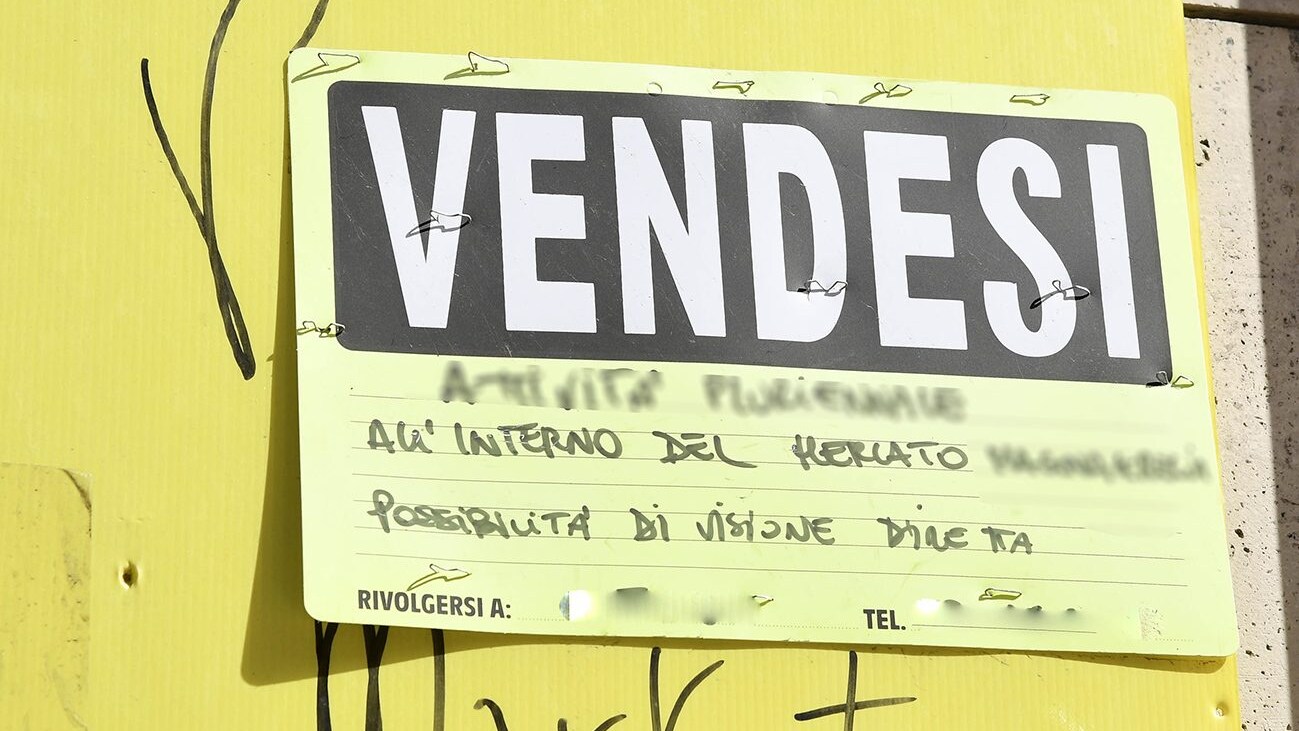 VENDESI
ATTIVITA' PLURIENNALE
ALL'INTERNO DEL MERCATO
POSSIBILITA' DI VISIONE DIRETTA
RIVOLGERSI A: TEL.